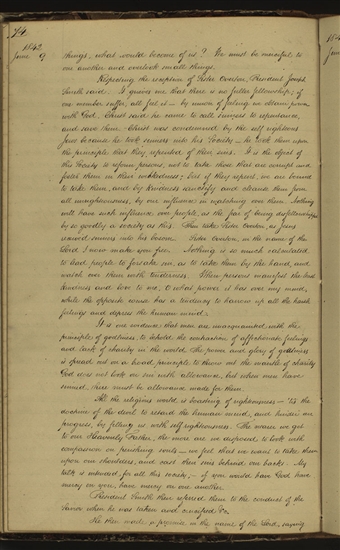 74
1842
June 9
things, what would become of us? We must be merciful to
one another and overlook small things.
Respecting the reception of Sister Overton, President Joseph
Smith said. It grieves me that there is no fuller fellowship; if
one member suffer, all feel it — by union of feeling we obtain power
with God. Christ said he came to call sinners to repentance,
and save them. Christ was condemned by the self righteous
Jews because he took sinners into his society — he took them upon
the principle that they repented of their sins. It is the object of
this Society to reform persons, not to take those that are corrupt and
foster them in their wickedness; but if they repent, we are bound
to take them, and by kindness sanctify and cleanse them from
all unrighteousness, by our influence in watching over them. Nothing
will have such influence over people, as the fear of being disfellowshipped
by so goodly a society as this. Then take Sister Overton, as Jesus
received sinners into his bosom. Sister Overton, in the name of the
Lord I now make you free. Nothing is so much calculated
to lead people to forsake sin, as to take them by the hand, and
watch over them with tenderness. When persons manifest the least
kindness and love to me, O what power it has over my mind,
while the opposite course has a tendency to harrow up all the harsh
feelings and depress the human mind.
It is one evidence that men are unacquainted with the
principle of godliness, to behold the contraction of affectionate feelings
and lack of charity in the world. The power and glory of godliness
is spread out on a broad principle to throw out the mantle of charity
God does not look on sin with allowance, but when men have
sinned, there must be allowance made for them.
All the religious world is boasting of righteousness — 'tis the
doctrine of the devil to retard the human mind, and hinder our
progress, by filling us with self righteousness. The nearer we get
to our Heavenly Father, the more are we disposed to look with
compassion on perishing souls — we feel that we want to take them
upon our shoulders, and cast their sins behind our backs. My
talk is intended for all this society; — if you would have God have
mercy on you, have mercy on one another.
President Smith then referred them to the conduct of the
Savior when he was taken and crucified &c
He then made a promise in the name of the Lord, saying